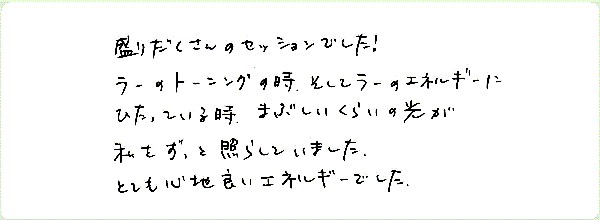 盛りだくさんのセッションでした!
ラーのトーニングの時、そしてラーのエネルギーに
ひたっている時、まぶしいくらいの光が
私をずっと照らしていました。
とても心地良いエネルギーでした。